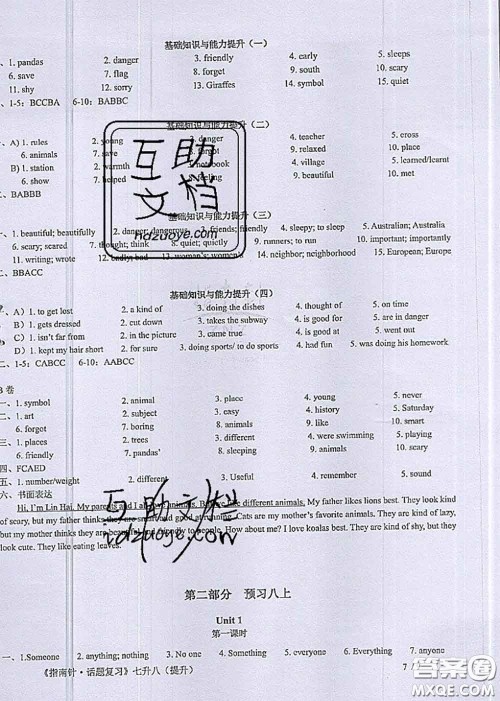 基础知识与能力提升（一）
、1. pandas 2. danger 3. friendly 4. early 5. sleeps
6. save 7. flag 8. forget 9. south 10. scary
11. shy 12. sorry 13. Giraffes 14. symbol 15. quiet
、1-5: BCCBA 6-10: BABBC
基础知识与能力提升（二）
、A) 1. rules 2. young 3. danger 4. teacher 5. cross
6. animals 7. save 8. forgot 9. relaxed 10. place
B) 1. station 2. warmth 3. notebook 4. village 5. learned/learnt
6. show 7. helped 8. feeling 9. beautiful 10. met
二、BABBB
基础知识与能力提升（三）
、1. beautiful; beautifully 2. danger; dangerous 3. friends; friendly 4. sleepy; to sleep 5. Australian; Australia
6. scary; scared 7. thought; think 8. quiet; quietly 9. runners; to run 10. important; importantly
11. writing; wrote 12. badly; bad 13. woman's; women's 14. neighbor; neighborhood 15. European; Europe
二、BBACC
基础知识与能力提升（四）
、A) 1. to get lost 2. a kind of 3. doing the dishes 4. thought of 5. on time
B) 1. gets dressed 2. cut down 3. takes the subway 4. is good for 5. are in danger
C) 1. isn't far from 2. in picture 3. came true 4. is good at 5. went out
D) 1. kept my hair short 2. for sure 3. doing sports/ to do sports 4. had fun 5. was doing his homework
二、1-5: CABCC 6-10: AABCC
B 卷
一、1. symbol 2. animal 3. place 4. young 5. never
二、1. art 2. subject 3. easy 4. history 5. Saturday
6. forgot 7. boring 8. any 9. like 10. smart
三、1. places 2. trees 3. different 4. were swimming 5. playing
6. friendly 7. pandas' 8. sleeping
四、FCAED
五、1. number/weight 2. different 3. Useful 4. remember 5. sound
六、书面表达
Hi, I'm Lin Hai. My parents and I all love animals. But we like different animals. My father likes lions best. They look kind
of scary, but my father thinks they are smart and good at running. Cats are my mother's favorite animals. They are kind of lazy,
but my mother thinks they are beautiful and friendly to people. How about me? I love koalas best. They are kind of shy, but they
look cute. They like eating leaves.
互助
文档
hdzuoye.com
互助文档
hdzuoye.com
第二部分 预习八上
Unit 1
第一课时
一、1.Someone 2. anything; nothing 3. No one 4. Something 5. everyone 6. Everything 7. anyone
《指南针·话题复习》七升八（提升） 7
答案圈
MXQE.COM